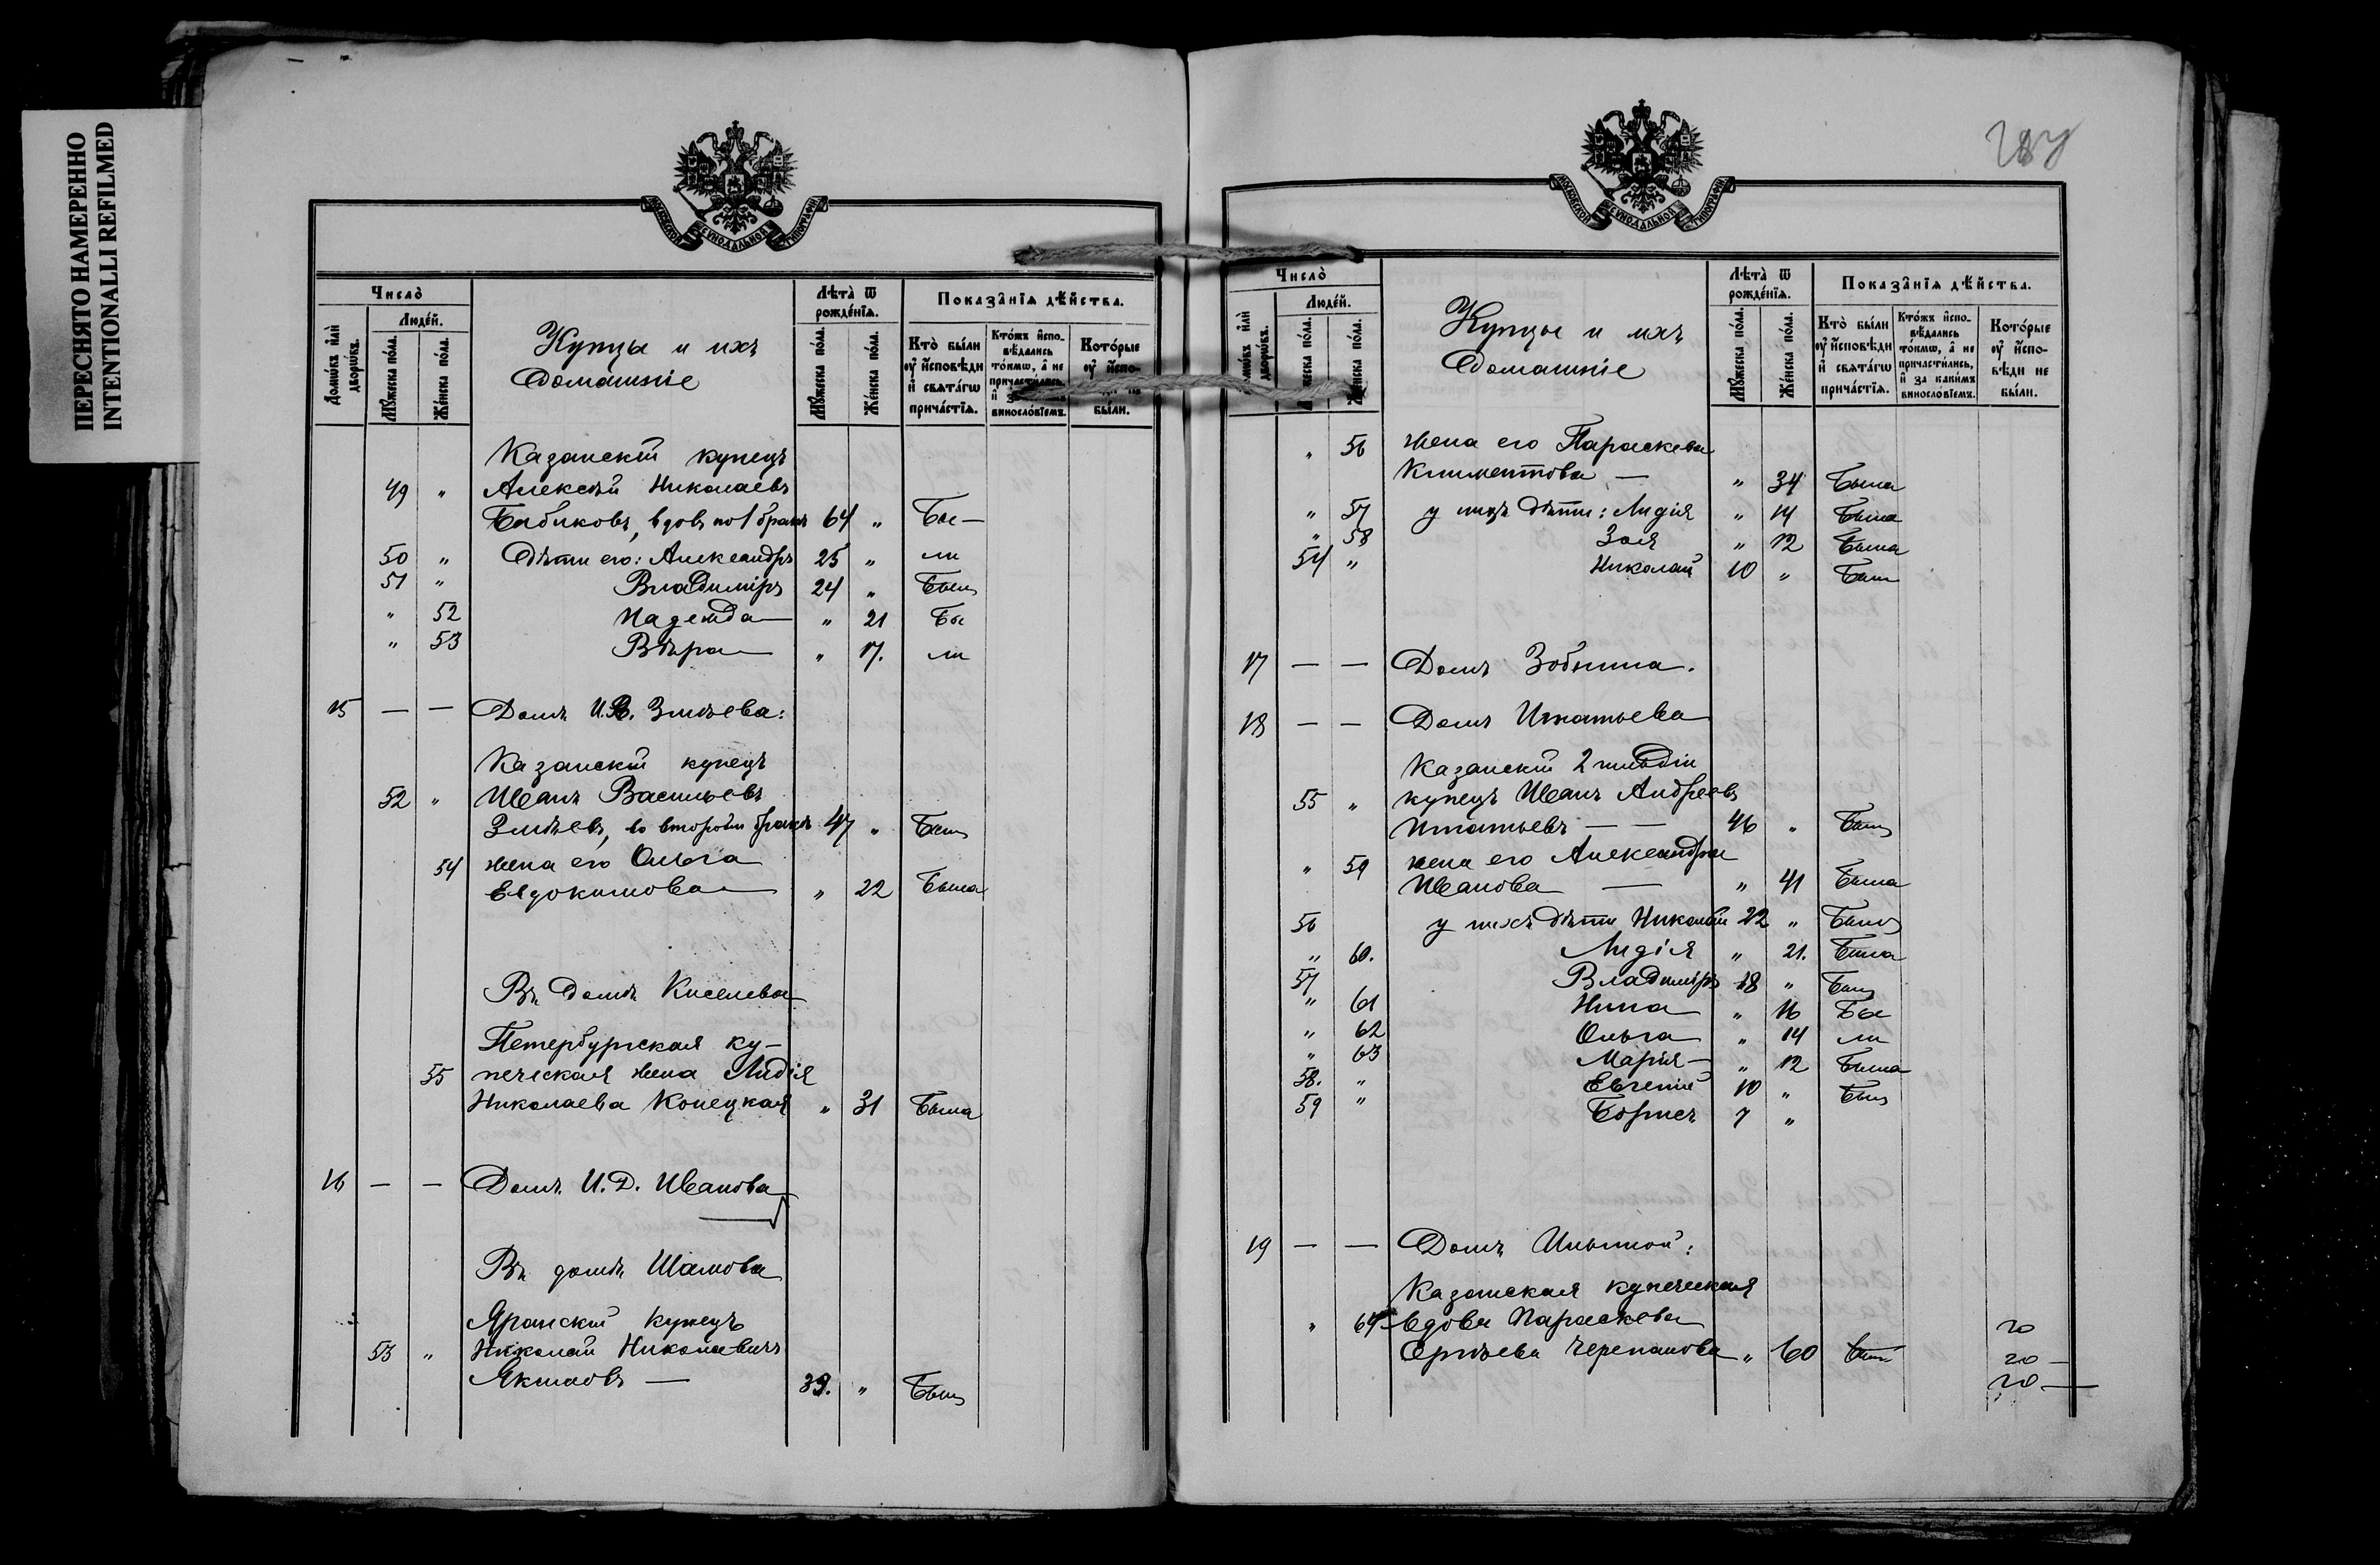 ПЕРЕСНЯТО НАМЕРЕННО
INTENTIONALLI REFILMED
МОСКОВСКОЙ СѴНОДАЛЬНОЙ ТИПОГРАФІИ
Число̀
Людей.
Домѡвъ или дворѡвъ.
Мꙋжеска пола.
Женска пола.
Купцы и ихъ
домашніе
Лѣта ѿ рожденїя.
Мꙋжеска пола.
Женска пола.
Показанїя дѣйства.
Кто были оу исповѣди и свѧтагѡ причастїя.
Ктожъ исповѣдались токмѡ, а не причастились, и за
винословїемъ.
Которые оу испо-
были.
Казанскій купецъ
49 " Алексѣй Николаевъ
Бабиковъ, вдовъ по 1 бракѣ 64 " Бы-
50 " Дѣти его: Александръ 25 " ли
51 " Владиміръ 24 " Былъ
" 52 Надежда — " 21 Бы
" 53 Вѣра — " 17. ли
15 — — Домъ И.В. Змѣева:
Казанскій купецъ
52 " Иванъ Васильевъ
Змѣевъ, во второмъ бракѣ 47 " Былъ
54 жена его Ольга
Евдокимова — " 22 Была
Въ домѣ Киселева
Петербургская ку-
55 печеская жена Лидія
Николаева Конецкая " 31 Была
16 — — Домъ И.Д. Иванова
Въ домѣ Шамова
Яранскій купецъ
53 " Николай Николаевичъ
39. " Былъ
МОСКОВСКОЙ СѴНОДАЛЬНОЙ ТИПОГРАФІИ
Число̀
Людей.
Домѡвъ или дворѡвъ.
Мꙋжеска пола.
Женска пола.
Купцы и ихъ
домашніе
Лѣта ѿ рожденїя.
Мꙋжеска пола.
Женска пола.
Показанїя дѣйства.
Кто были оу исповѣди и свѧтагѡ причастїя.
Ктожъ исповѣдались токмѡ, а не причастились, и за какимъ винословїемъ.
Которые оу исповѣди не были.
" 56 жена его Параскева
Климентова — " 34 Была
" 57 у нихъ дѣти: Лидія " 14 Была
" 58 Зоя " 12 Была
54 " Николай 10 " Былъ
17 — — Домъ Зобнина.
18 — — Домъ Игнатьева
Казанскій 2 гильдіи
55 " купецъ Иванъ Андреевъ
Игнатьевъ — — 46 " Былъ
" 59 жена его Александра
Иванова — " 41 Была
56 у нихъ дѣти Николай 22 " Былъ
" 60. Лидія " 21. Была
57 Владиміръ 18 " Былъ
" 61 Нина " 16 Бы
" 62 Ольга " 14 ли
" 63 Марія — " 12 Была
58. " Евгеній 10 " Былъ
59 " Борисъ 7 "
19 — — Домъ Ильиной:
Казанская купеческая
" 64 вдова Параскева
Сергѣева Черепанова " 60
20
20 —
20 —